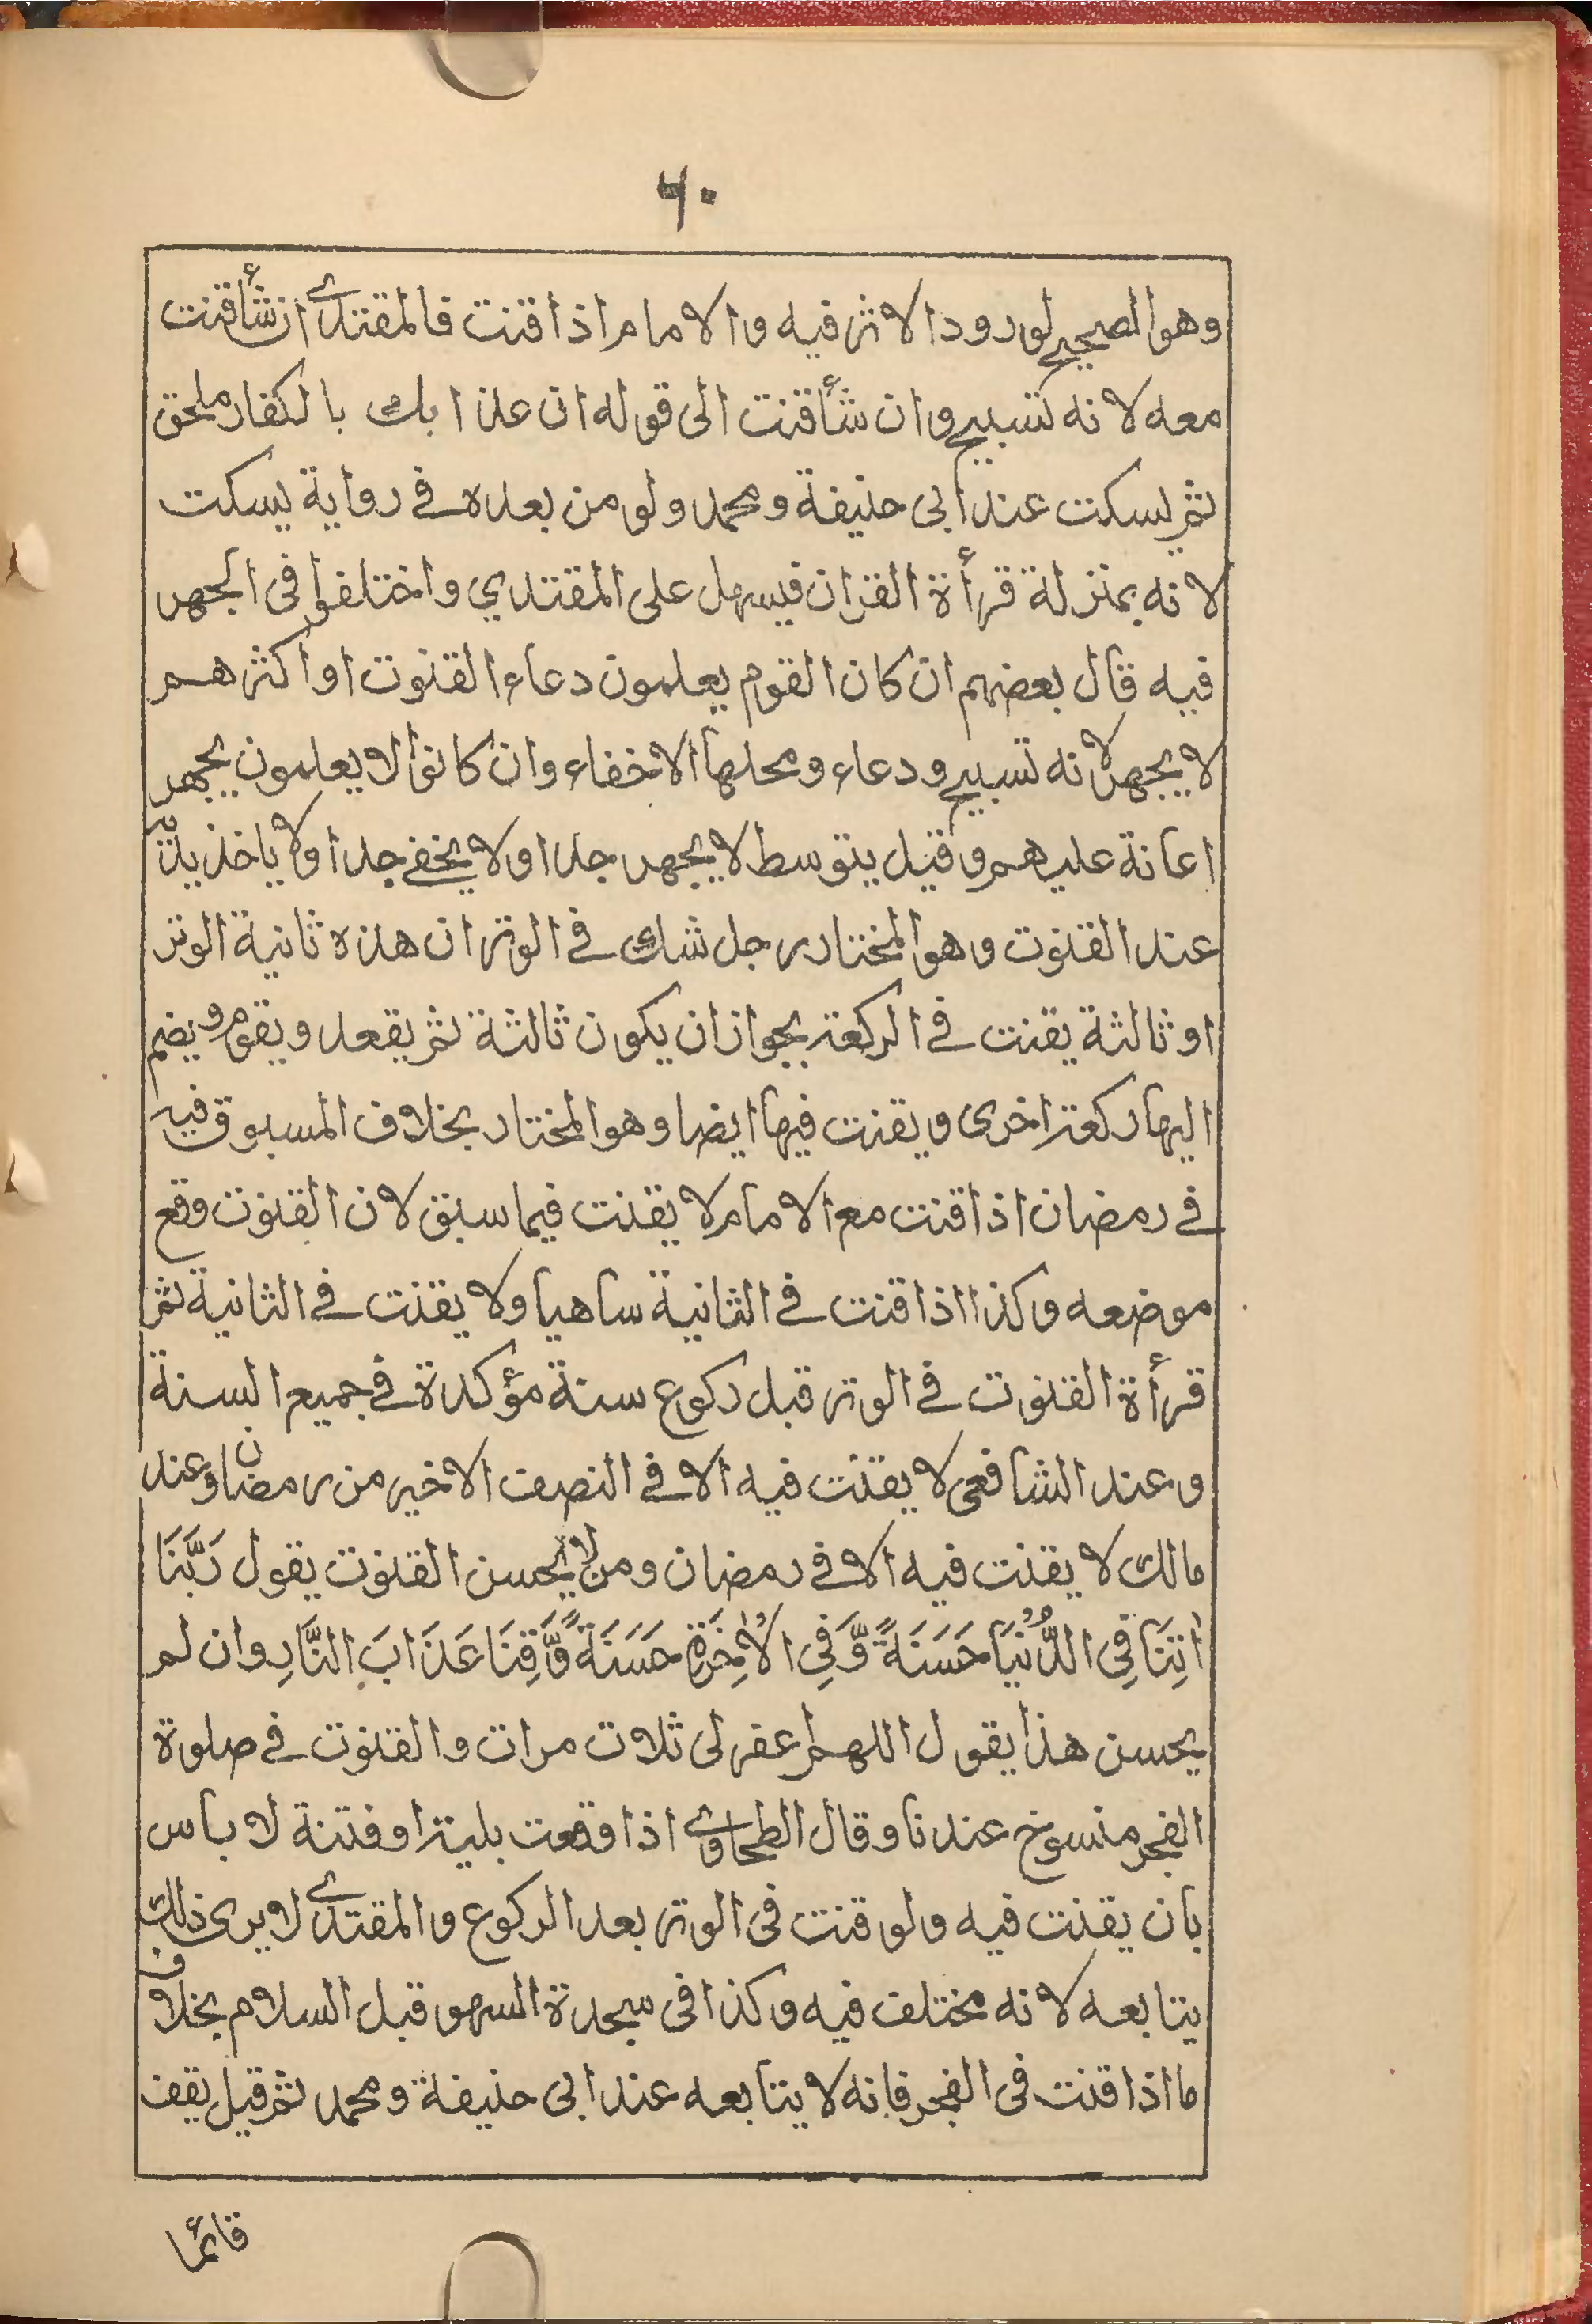 ۶۰
وهو الصحيح لورود الاثر فيه والامام اذا قنت فالمقتدي ان شأ قنت
معه لانه تسبيح وان شأ قنت الى قوله ان عذابك بالكفار ملحق
ثم يسكت عند ابى حنيفة ومحمد ولو من بعده في رواية يسكت
لانه بمنزلة قرأة القران فيسهل على المقتدي واختلفوا فى الجهر
فيه قال بعضهم ان كان القوم يعلمون دعاء القنوت او اكثرهم
لا يجهر لانه تسبيح ودعاء ومحلها الاخفاء وان كانوا لا يعلمون يجهر
اعانة عليهم وقيل يتوسط لا يجهر جدا ولا يخفے جدا ولا ياخذ يديه
عند القنوت وهو المختار رجل شك في الوتر ان هذه ثانية الوتر
او ثالثة يقنت في الركعة بجواز ان يكون ثالثة ثم يقعد ويقوم ويضم
اليها ركعة اخرى ويقنت فيها ايضا وهو المختار بخلاف المسبوق فيه
في رمضان اذا قنت مع الامام لا يقنت فيما سبق لان القنوت وقع
موضعه وكذا اذا قنت في الثانية ساهيا ولا يقنت في الثانية ثم
قرأة القنوت في الوتر قبل ركوع سنة مؤكدة في جميع السنة
وعند الشافعى لا يقنت فيه الا في النصف الاخير من رمضان وعند
مالك لا يقنت فيه الا في رمضان ومن لا يحسن القنوت يقول رَبَّنَا
اٰتِنَا فِى الدُّنْيَا حَسَنَةً وَّفِى الْاٰخِرَةِ حَسَنَةً وَّقِنَا عَذَابَ النَّارِ وان لم
يحسن هذا يقول اللهم اغفر لى ثلاث مرات والقنوت في صلوة
الفجر منسوخ عندنا وقال الطحاوي اذا وقعت بلية او فتنة لا باس
بان يقنت فيه ولو قنت فى الوتر بعد الركوع والمقتدي لا يرى ذلك
يتابعه لانه مختلف فيه وكذا فى سجدة السهو قبل السلام بخلاف
ما اذا قنت فى الفجر فانه لا يتابعه عند ابى حنيفة ومحمد ثم قيل يقف
قائما